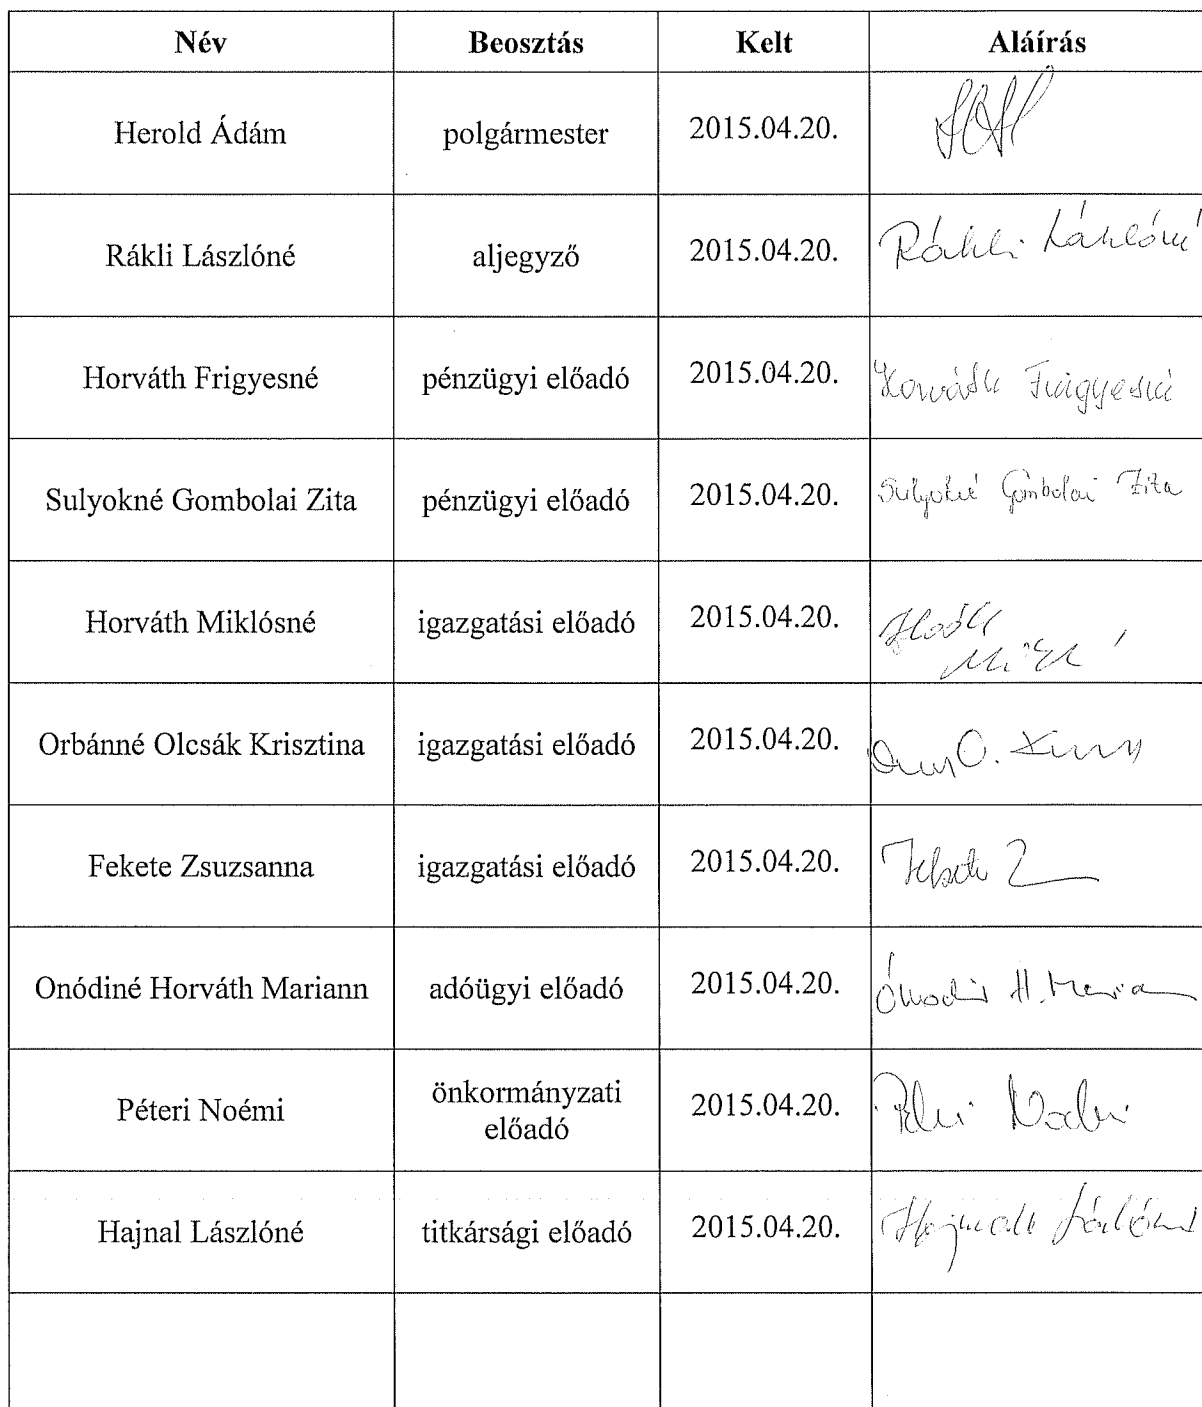 Név Beosztás Kelt Aláírás
Herold Ádám polgármester 2015.04.20.
Rákli Lászlóné aljegyző 2015.04.20. Rákli Lászlóné
Horváth Frigyesné pénzügyi előadó 2015.04.20. Horváth Frigyesné
Sulyokné Gombolai Zita pénzügyi előadó 2015.04.20. Sulyokné Gombolai Zita
Horváth Miklósné igazgatási előadó 2015.04.20.
Orbánné Olcsák Krisztina igazgatási előadó 2015.04.20.
Fekete Zsuzsanna igazgatási előadó 2015.04.20. Fekete Z
Onódiné Horváth Mariann adóügyi előadó 2015.04.20. H. Mariann
Péteri Noémi önkormányzati előadó 2015.04.20. Péteri Noémi
Hajnal Lászlóné titkársági előadó 2015.04.20. Hajnal Lászlóné